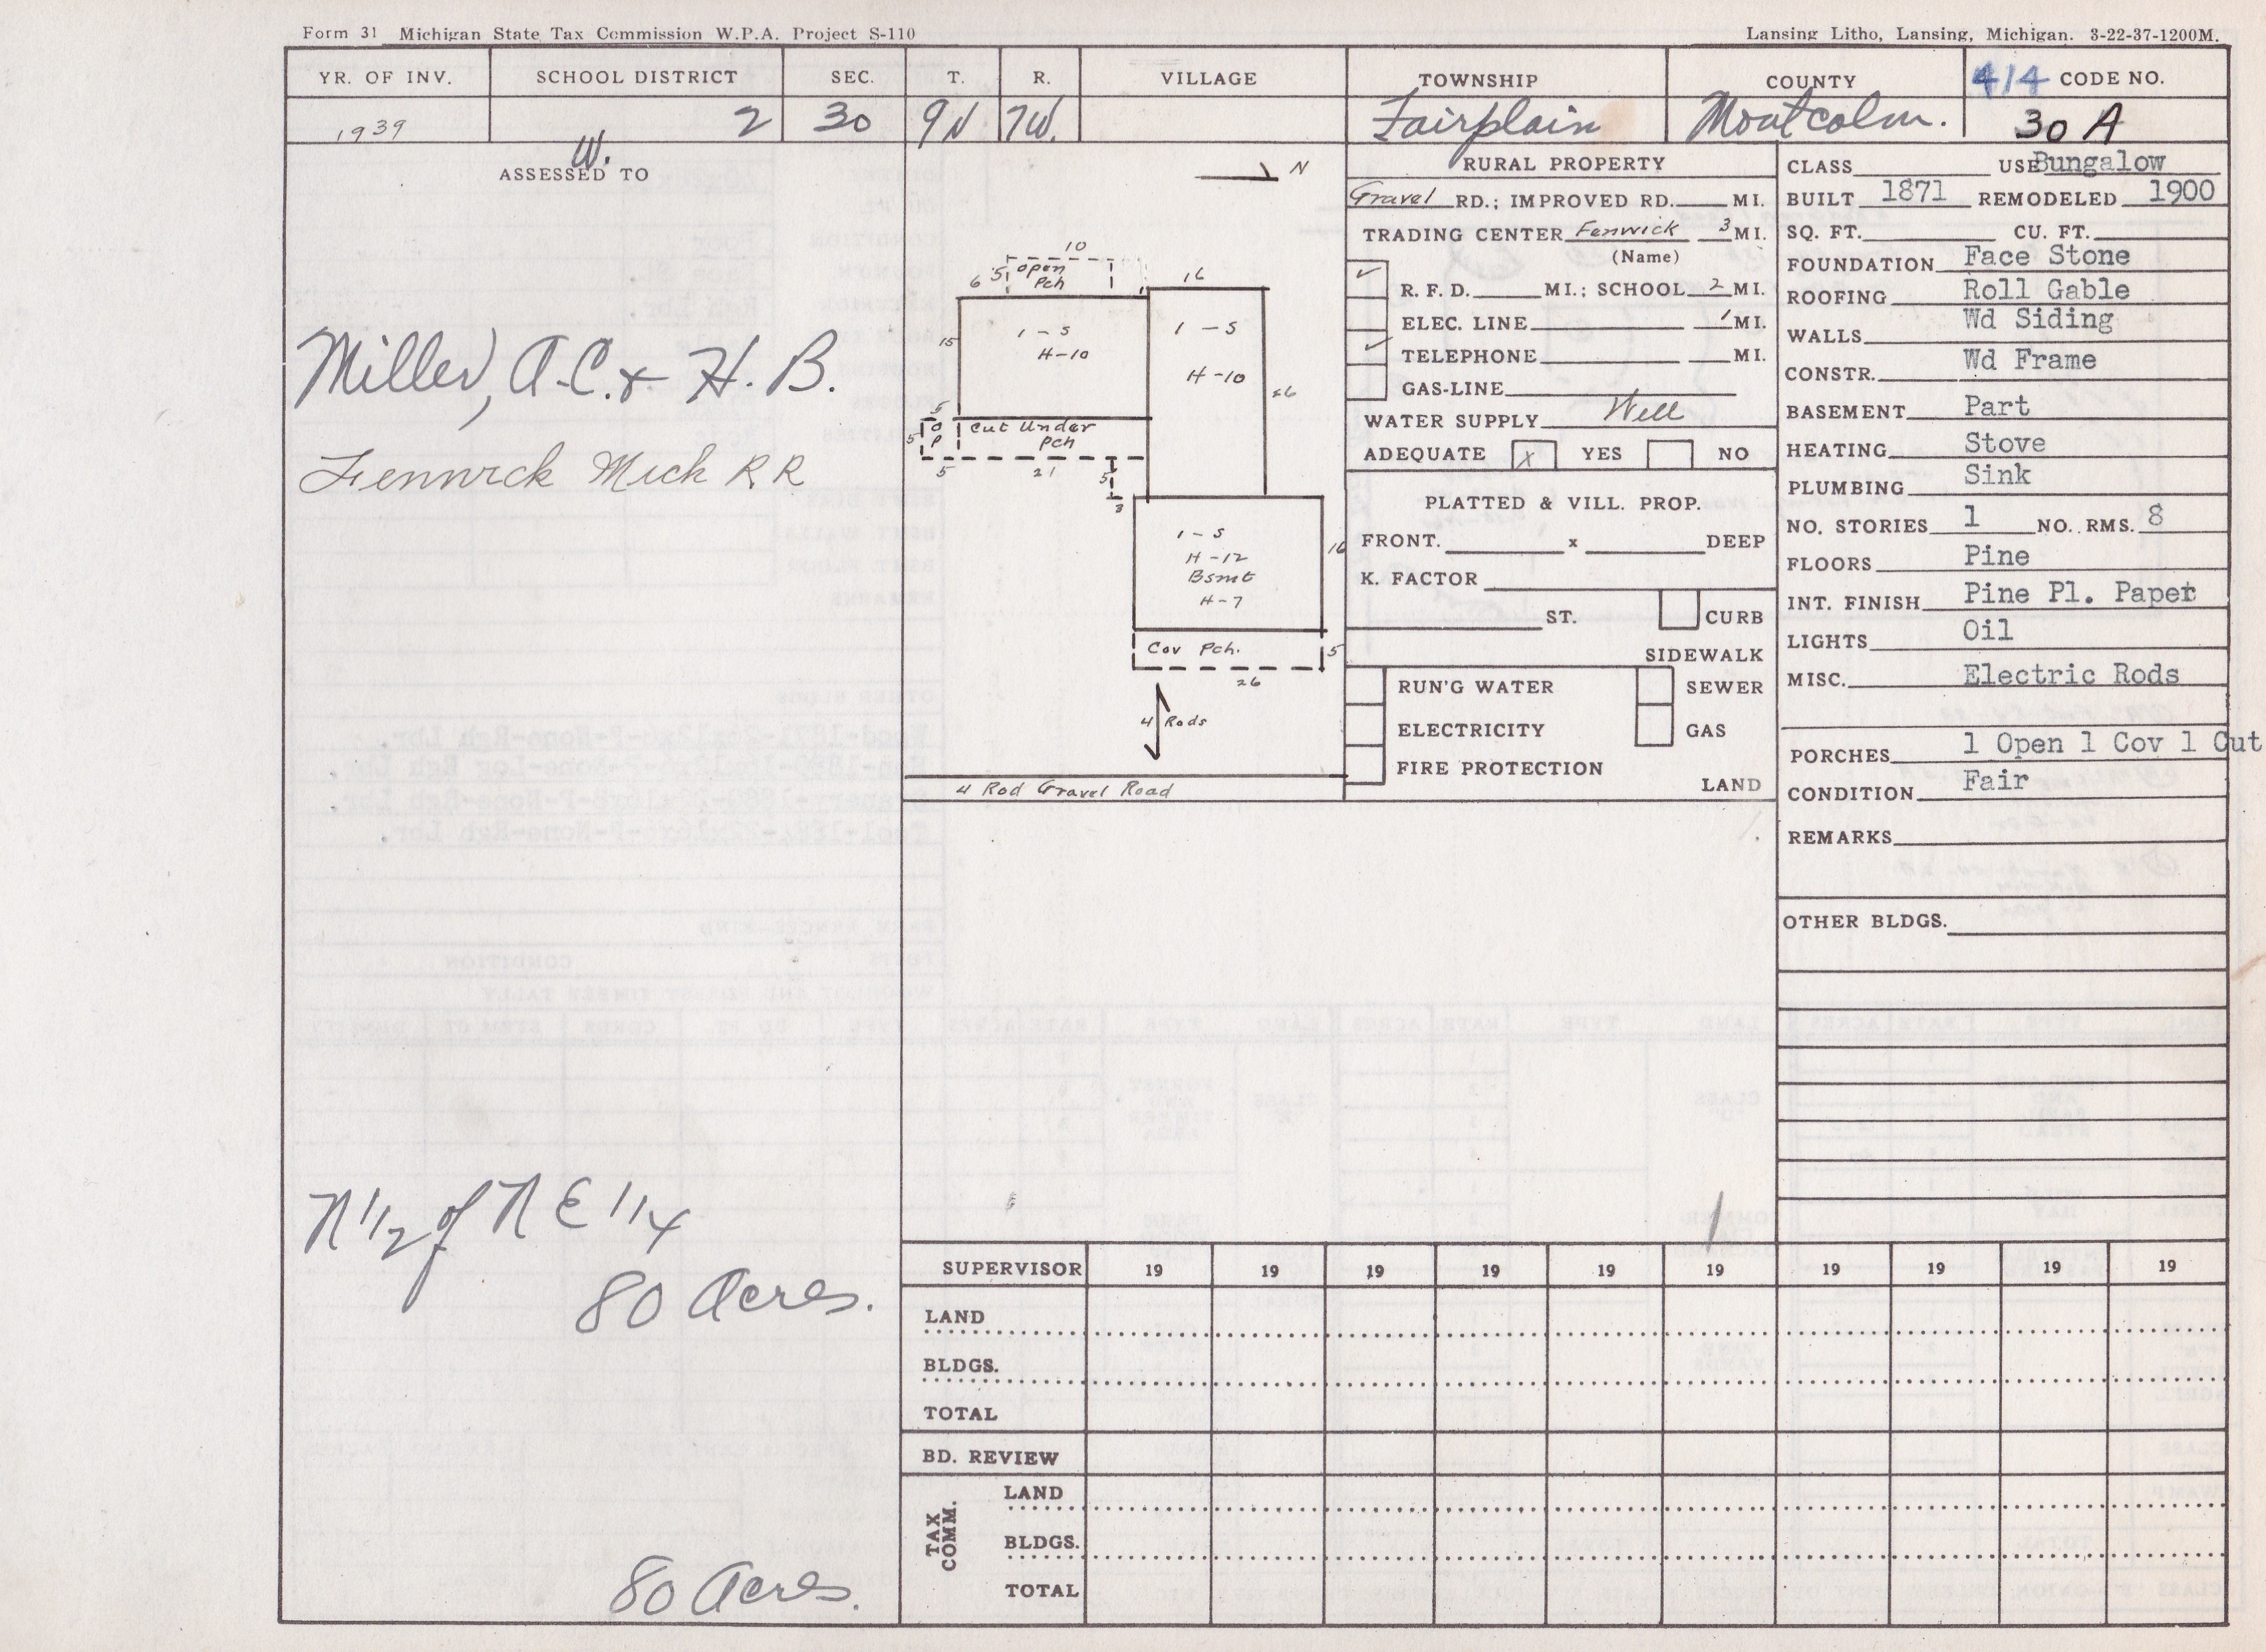 Form 31 Michigan State Tax Commission W.P.A. Project S-110
Lansing Litho, Lansing, Michigan. 3-22-37-1200M.
YR. OF INV. SCHOOL DISTRICT SEC. T. R. VILLAGE TOWNSHIP COUNTY 414 CODE NO.
1939 2 30 9N 7W. Fairplain Montcalm. 30 A
W.
ASSESSED TO
Miller, A.C. & H. B.
Fenwick Mich RR
N 1/2 of N E 1/4
80 Acres.
80 Acres.
N
10
6 5 open Pch
16
15
1-S
H-10
1-S
H-10
26
5
5 O P
Cut Under
Pch
5 21 5
3
1-S
H-12
Bsmt
H-7
16
Cov Pch. 5
26
4 Rods
4 Rod Gravel Road
RURAL PROPERTY
Gravel RD.; IMPROVED RD. MI.
TRADING CENTER Fenwick 3 MI.
(Name)
✓ R. F. D. MI.; SCHOOL 2 MI.
ELEC. LINE 1 MI.
✓ TELEPHONE MI.
GAS-LINE
WATER SUPPLY Well
ADEQUATE X YES NO
PLATTED & VILL. PROP.
FRONT. x DEEP
K. FACTOR
ST. CURB
SIDEWALK
RUN'G WATER SEWER
ELECTRICITY GAS
FIRE PROTECTION
LAND
CLASS USE Bungalow
BUILT 1871 REMODELED 1900
SQ. FT. CU. FT.
FOUNDATION Face Stone
ROOFING Roll Gable
WALLS Wd Siding
CONSTR. Wd Frame
BASEMENT Part
HEATING Stove
PLUMBING Sink
NO. STORIES 1 NO. RMS. 8
FLOORS Pine
INT. FINISH Pine Pl. Paper
LIGHTS Oil
MISC. Electric Rods
PORCHES 1 Open 1 Cov 1 Cut
CONDITION Fair
REMARKS
OTHER BLDGS.
SUPERVISOR 19 19 19 19 19 19 19 19 19 19
LAND
BLDGS.
TOTAL
BD. REVIEW
TAX COMM.
LAND
BLDGS.
TOTAL